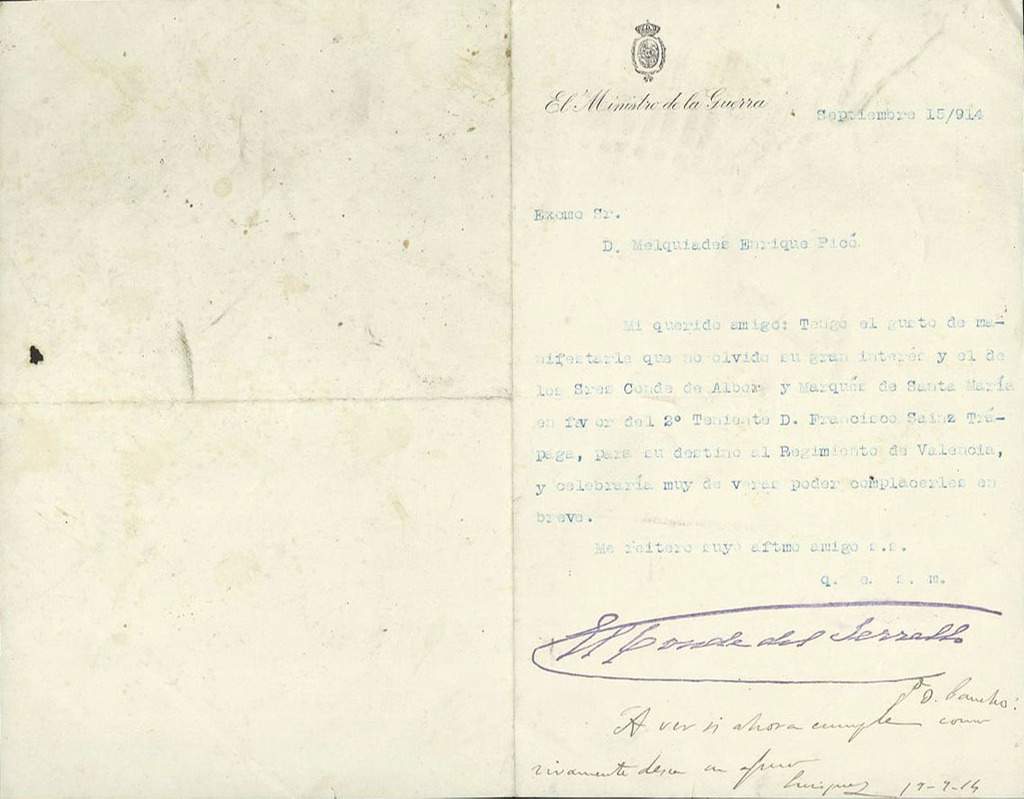 El Ministro de la Guerra
Septiembre 15/914
Excmo Sr.
D. Melquiades Enrique Picó
Mi querido amigo: Tengo el gusto de ma-
nifestarle que no olvido su gran interés y el de
los Sres Conde de Albor y Marqués de Santa María
en favor del 2º Teniente D. Francisco Sainz Trá-
paga, para su destino al Regimiento de Valencia,
y celebraría muy de veras poder complacerles en
breve.
Me reitero suyo aftmo amigo s.s.
q. e. s. m.
El Conde del Serrallo
D.
A ver si ahora cumple como
vivamente desea su